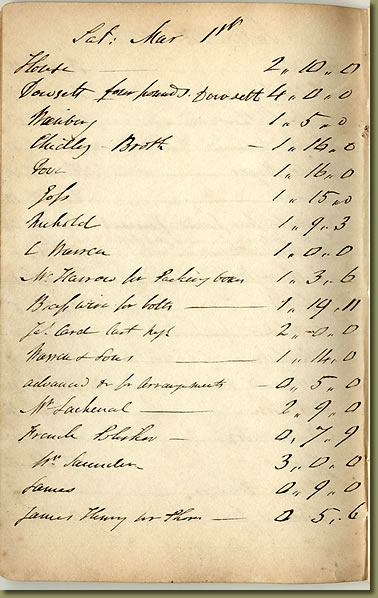 Sat: Mar 1st
House 2 „ 10 „ 0
Dowsett four pounds Dowsett 4 „ 0 „ 0
1 „ 5 „ 0
Chidley Broth — 1 „ 16 „ 0
1 „ 16 „ 0
Goss 1 „ 15 „ 0
1 „ 9 „ 3
L Warren 1 „ 0 „ 0
Mr Harrow for Packing boxes 1 „ 3 „ 6
Brass wire for bolts — 1 „ 19 „ 11
Jas Card 2 „ 0 „ 0
Warren & Sons — 1 „ 14 „ 0
advanced for arrangements — 0 „ 5 „ 0
Mr Lachenal — 2 „ 9 „ 0
French Polisher — 0 „ 7 „ 9
Wm Saunders 3 „ 0 „ 0
James 0 „ 9 „ 0
James Henry — 0 5 „ 6